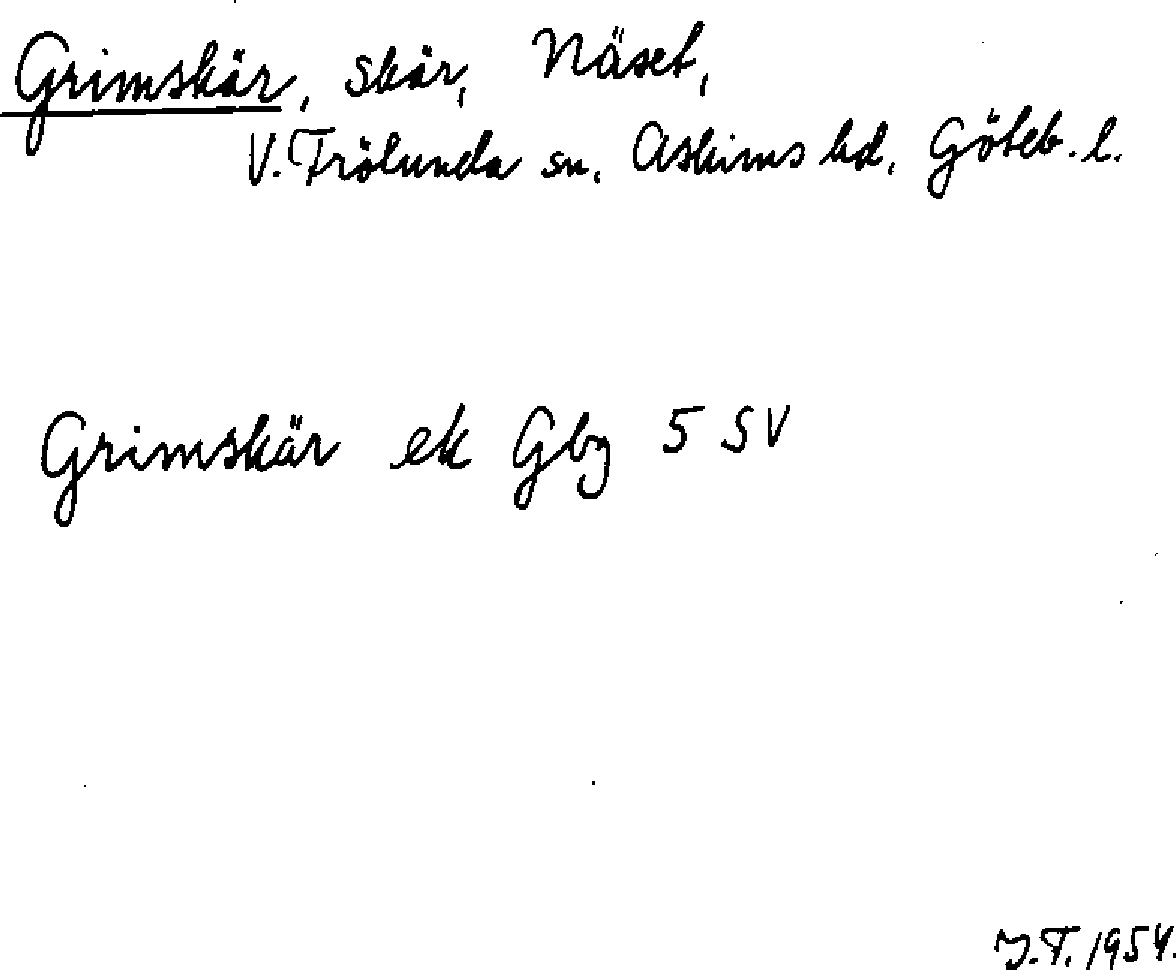 Grimskär, skär, Näset,
V. Frölunda sn. Askims hd, Göteb. l.
Grimskär ek Gbg 5 SV
J.T. 1954.